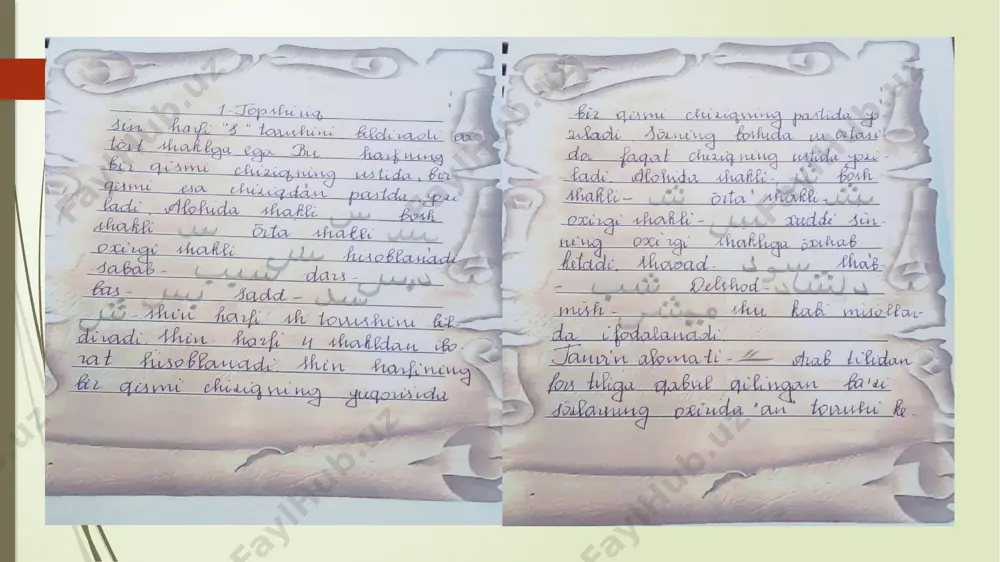 1-Topshiriq
Sin harfi "S" tovushini bildiradi va
tört shaklga ega Bu harfning
bir qismi chiziqning ustida, bir
qismi esa chiziqdan pastda yozi
ladi Alohida shakli س bosh
shakli سـ örta shakli ـسـ
oxirgi shakli ـس hisoblanadi
Sabab- سبب dars- درس
bas- بس Sadd- سد
ش -shin harfi sh tovushini bil-
diradi. Shin harfi 4 shakldan ibo-
rat hisoblanadi. Shin harfining
bir qismi chiziqning yuqorisida
bir qismi chiziqning pastida yo-
ziladi Sözning boshida va örtasi
da faqat chiziqning ustida yozi-
ladi. Alohida shakli- ش bosh
shakli- شـ örta shakli- ـشـ
oxirgi shakli- ـش xuddi sin-
ning oxirgi shakliga öxshab
ketadi. Shab
- شب Delshod- دلشاد
mish- shu kabi misollar-
da ifodalanadi.
Tanvin alomati- Arab tilidan
fors tiliga qabul qilingan ba'zi
sözlarning oxirida "an" tovushi ke-
FaylHub.uz